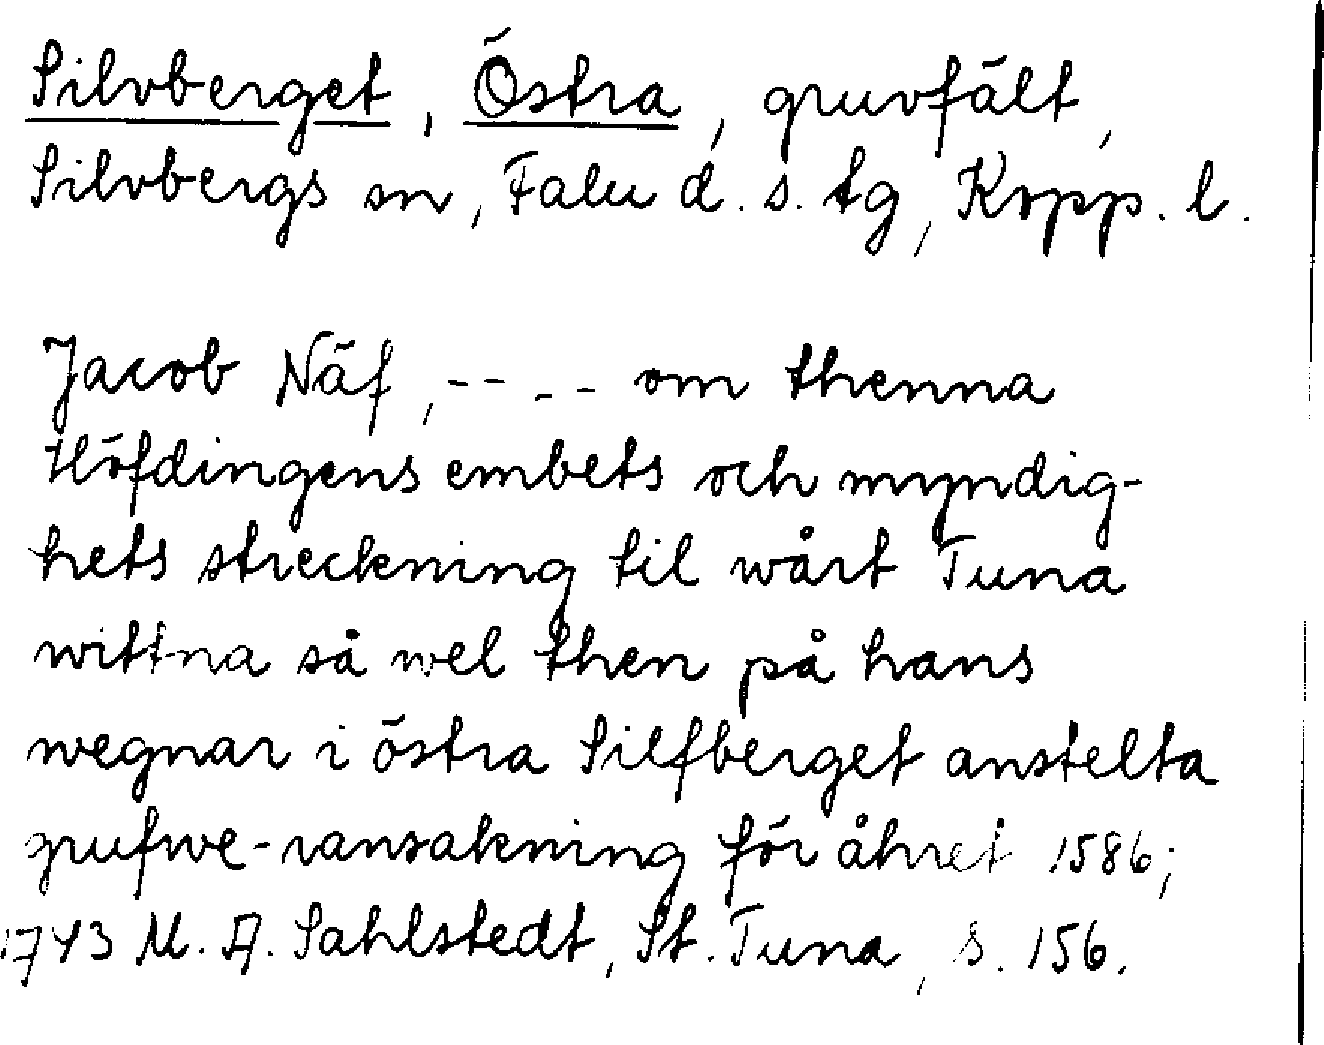 Silvberget, Östra, gruvfält,
Silvbergs sn, Falu d. s. tg, Kopp. l.
Jacob Näf, - - - - om thenna
Höfdingens embets och myndig-
hets streckning til wårt Tuna
wittna så wel then på hans
wegnar i östra Silfberget anstelta
grufwe-ransakning för åhret 1586;
1743 M. A. Sahlstedt, St. Tuna, s. 156.